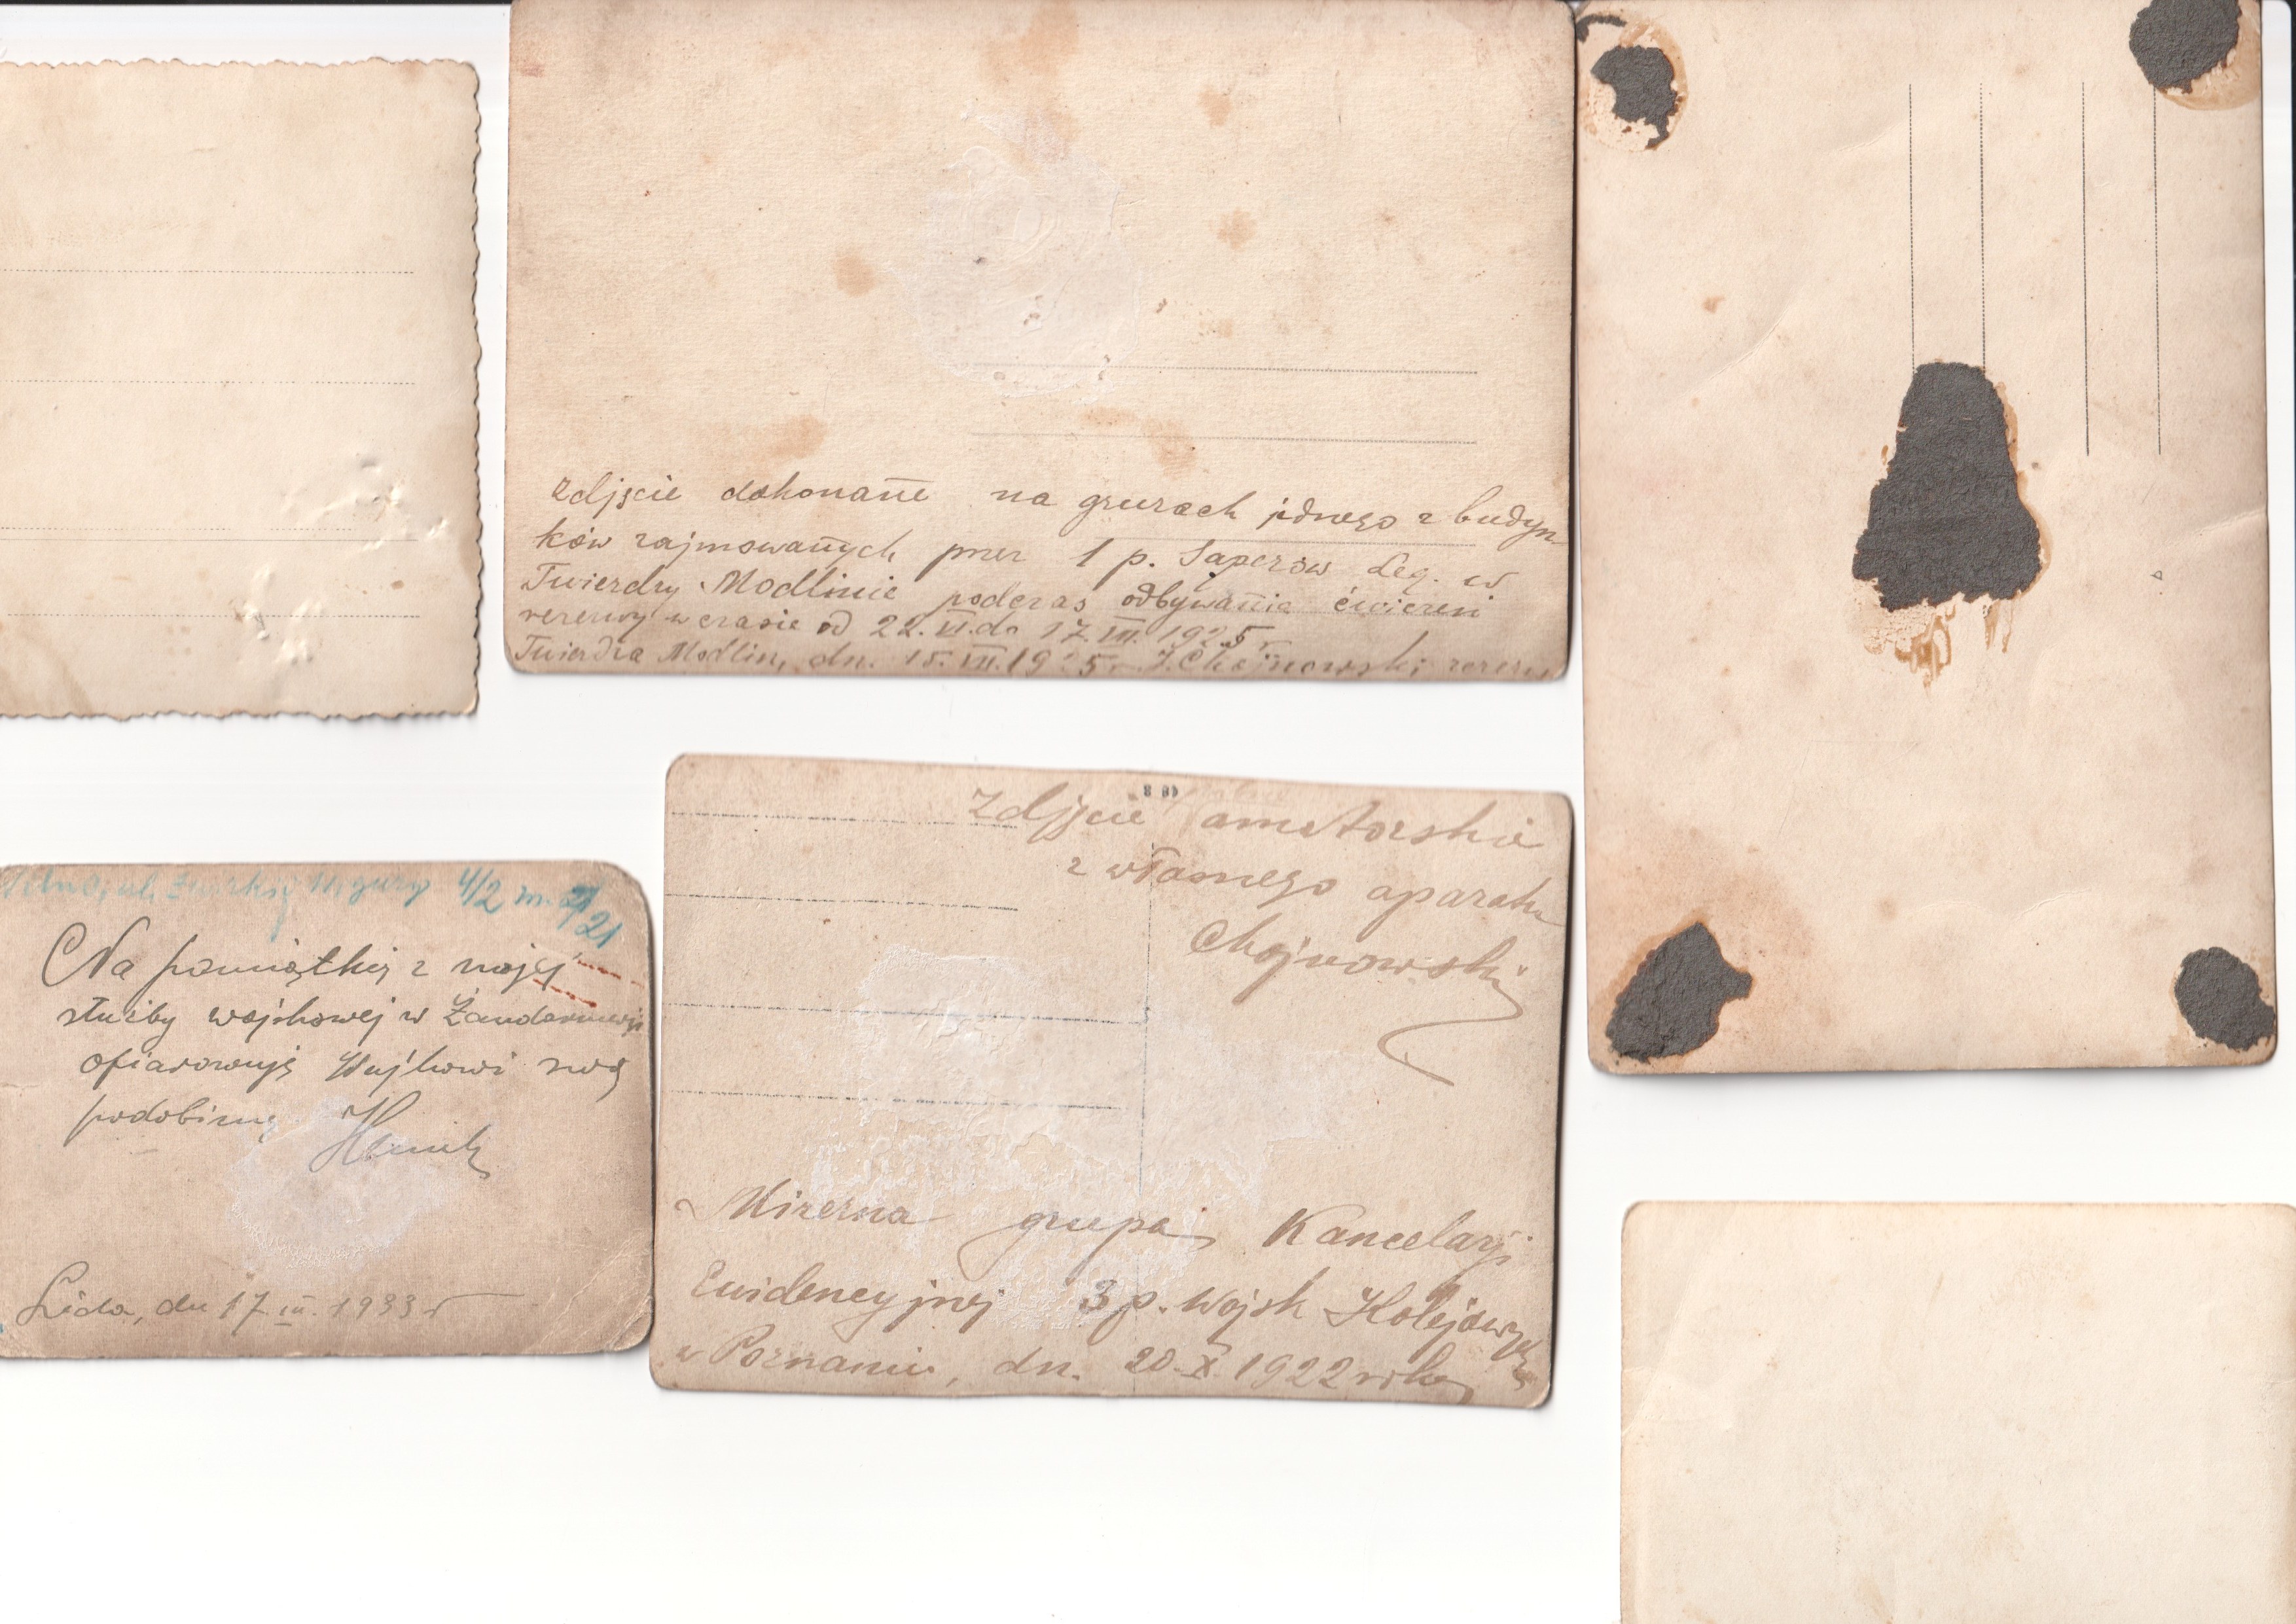 Zdjęcie dokonane na gruzach jednego z budyn
ków zajmowanych przez 1 p. Saperów Leg. w
Twierdzy Modlinie podczas odbywania ćwiczeń
rezerwy w czasie od 22.VI. do 17.VII. 1925 r.
Twierdza Modlin, dn. 15.VII.1925 r. J. Chojnowski rezerw
Zdjęcie amatorskie
z własnego aparatu
Chojnowski
Mizerna grupa Kancelarji
Ewidencyjnej 3 p. Wojsk Kolejowych
w Poznaniu, dn. 20.X.1922 roku
ul. Żwirki i Wigury 4/2 m. 21
Na pamiątkę z mojej
służby wojskowej w Żandarmerji
ofiarowuję Wujkowi swą
podobiznę Heniek
Lida, dn 17.III.1933 r